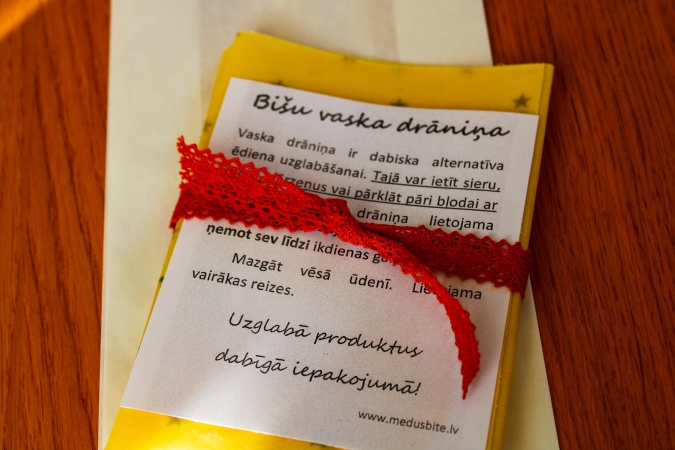 Bišu vaska drāniņa
Vaska drāniņa ir dabiska alternatīva
ēdiena uzglabāšanai. Tajā var ietīt sieru,
vai pārklāt pāri blodai ar
drāniņa lietojama
ņemot sev līdzi ikdienas
Mazgāt vēsā ūdenī.
vairākas reizes.
Uzglabā produktus
dabīgā iepakojumā!
www.medusbite.lv